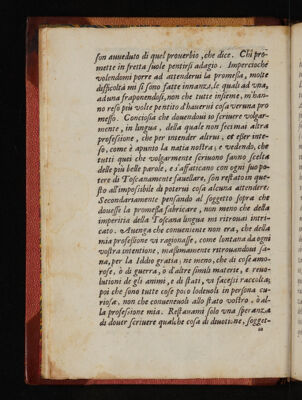 son auueduto di quel prouerbio, che dice. Chi pro-
mette in fretta suole pentirsi adagio. Imperciochè
volendomi porre ad attenderui la promessa, molte
difficoltà mi si sono fatte innanzi, le quali ad vna,
ad vna fraponendosi, non che tutte insieme, m'han-
no reso più volte pentito d'hauerui cosa veruna pro
messo. Conciosia che douendoui io scriuere volgar-
mente, in lingua, della quale non feci mai altra
professione, che per intender altrui, et esser inte-
so, come è apunto la natia nostra; e vedendo, che
tutti quei che volgarmente scriuono fanno scelta
delle più belle parole, e s'affaticano con ogni suo po-
tere di Toscanamente fauellare, son restato in que-
sto all'impossibile di poterui cosa alcuna attendere.
Secondariamente pensando al soggetto sopra che
douessi la promessa fabricare, non meno che della
imperitia della Toscana lingua mi ritrouai intri-
cato. Auenga che conueniente non era, che della
mia professione vi ragionasse, come lontana da ogni
vostra intentione, massimamente ritrouandoui sa-
na, per la Iddio gratia; ne meno, che di cose amo-
rose, ò di guerra, o d'altre simili materie, e reuo-
lutioni de gli animi, e di stati, vi facessi raccolta;
poi che sono tutte cose poco lodeuoli in persona cu-
riosa, non che conueneuoli allo stato vostro, ò al-
la professione mia. Restauami solo vna speranza
di douer scriuere qualche cosa di diuotione, sogget-